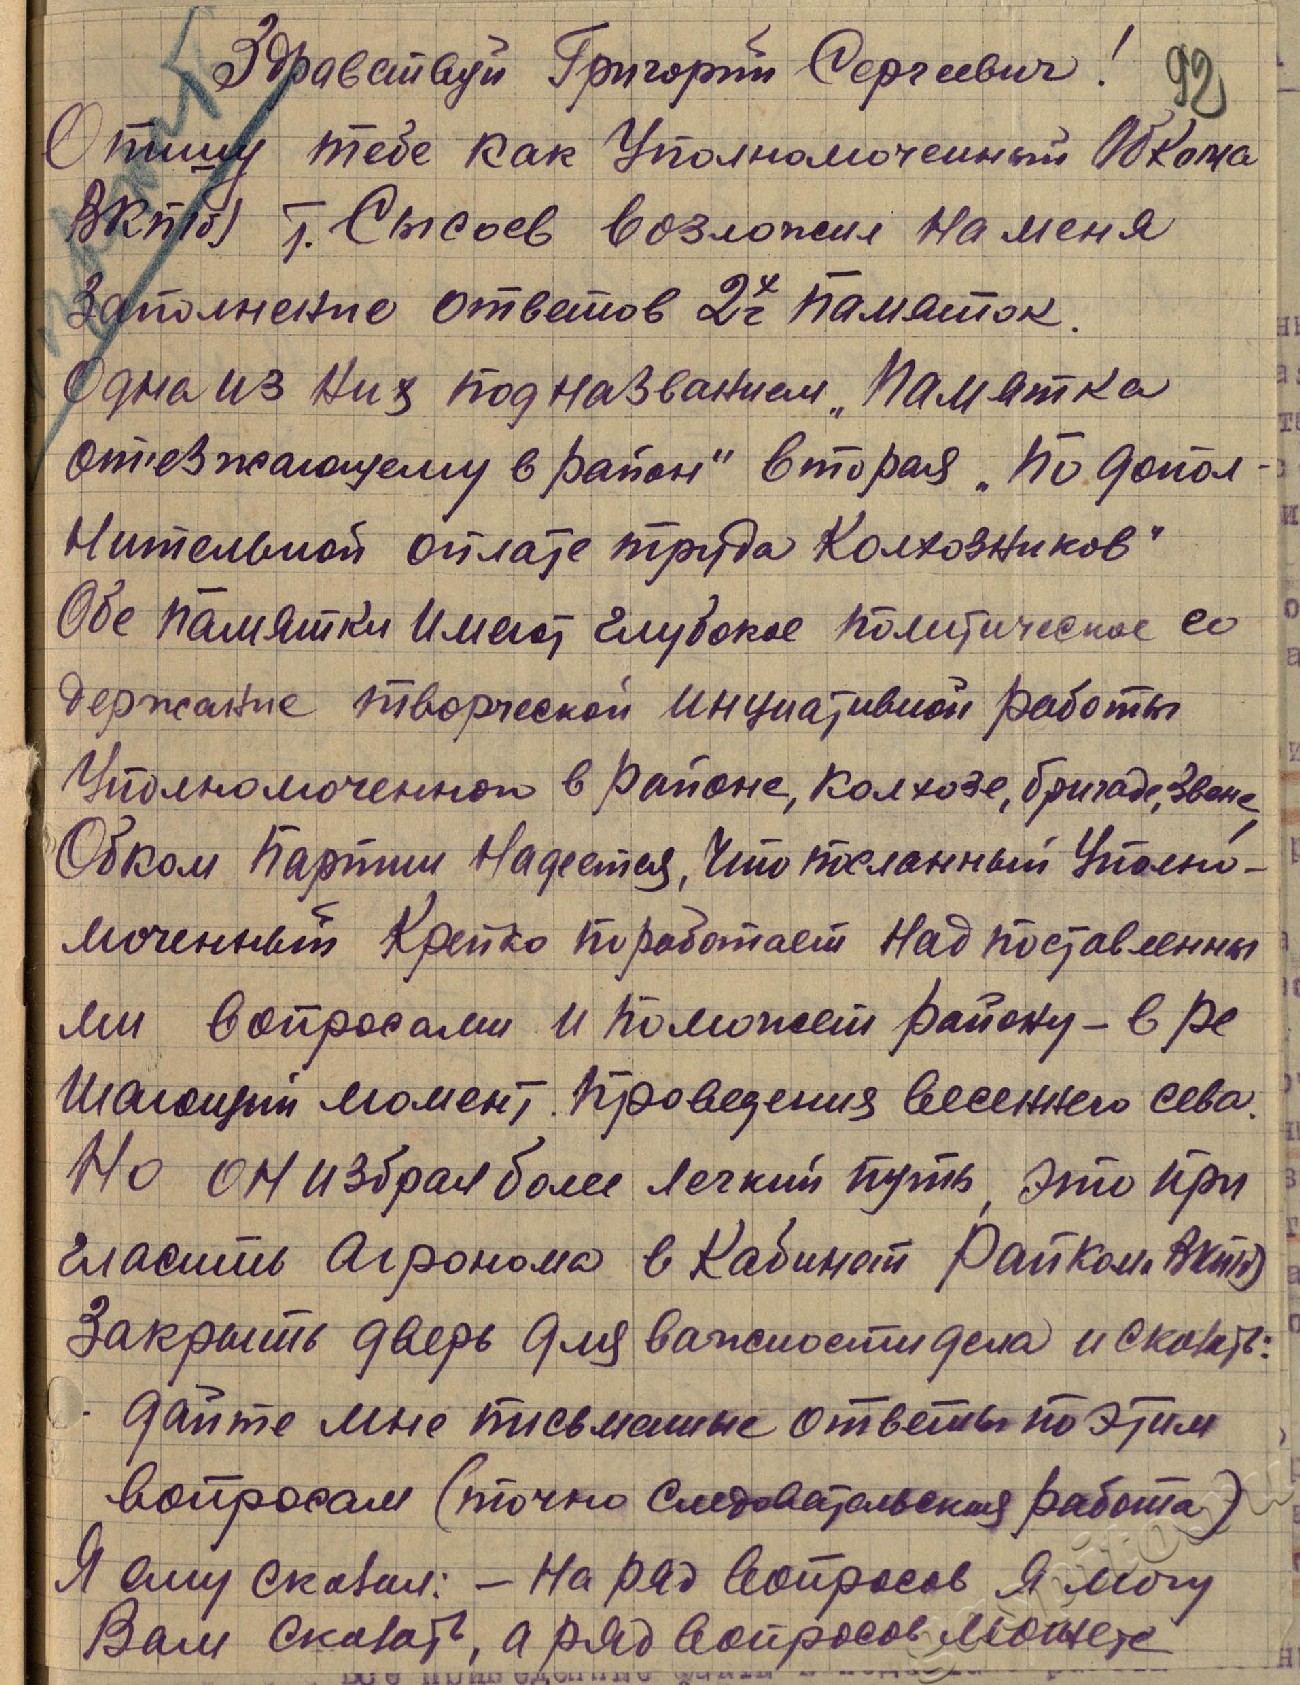 92
Здравствуй Григорий Сергеевич!
Опишу тебе как Уполномоченный Обкома
ВКП(б) т. Сысоев возложил на меня
Заполнение ответов 2х памяток.
Одна из них под названием „Памятка
отъезжающему в район" вторая „По допол-
нительной оплате труда Колхозников"
Обе памятки имеют глубокое политическое со
держание творческой инциативной работы
Уполномоченного в районе, колхозе, бригаде, звене,
Обком Партии Надеется, что посланный Уполно-
моченный Крепко поработает над поставленны
ми вопросами и поможет району – в ре
шающий момент проведения весеннего сева.
Но он избрал более легкий путь, это при
гласить Агронома в Кабинет Райкома ВКП(б)
Закрыть дверь для важности дела и сказать:
дайте мне письменные ответы по этим
вопросам (точно следовательская работа)
Я ему сказал: – На ряд вопросов я могу
Вам сказать, а ряд вопросов можете